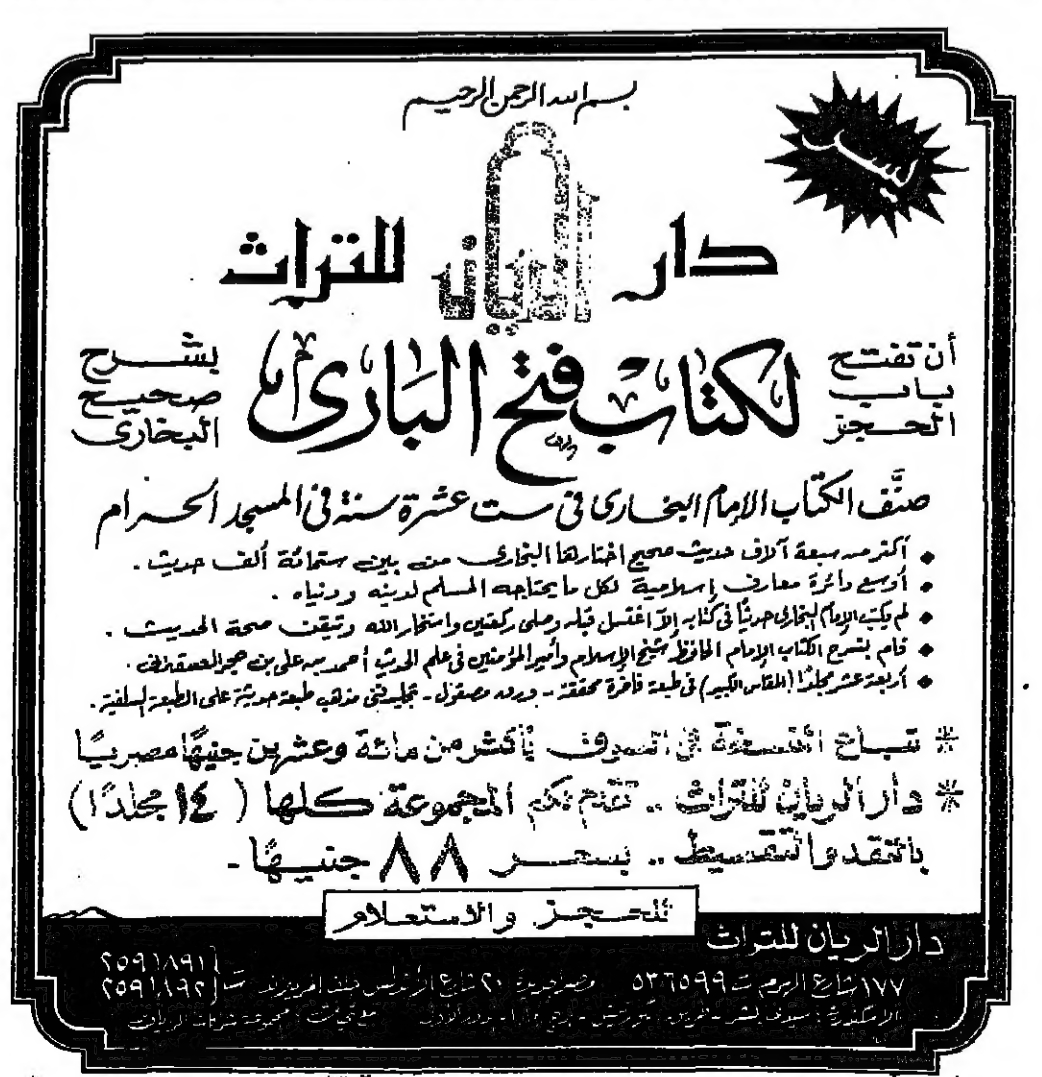 بسم الله الرحمن الرحيم
يسر
دار الريان للتراث
أن تفتح باب الحجز
لكتاب فتح البارى
بشرح صحيح البخارى
صنَّف الكتاب الإمام البخارى فى ست عشرة سنة فى المسجد الحرام
أكثر من سبعة آلاف حديث صحيح اختارها البخارى من بين ستمائة ألف حديث .
أوسع دائرة معارف إسلامية لكل ما يحتاجه المسلم لدينه ودنياه .
لم يكتب الإمام البخارى حديثًا فى كتابه إلا اغتسل قبله وصلى ركعتين واستخار الله وتيقن صحة الحديث .
قام بشرح الكتاب الإمام الحافظ شيخ الإسلام وأمير المؤمنين فى علم الحديث أحمد بن على بن حجر العسقلانى .
أربعة عشر مجلدًا (المقاس الكبير) فى طبعة فاخرة محققة - ورق مصقول - تجليد فنى مذهب طبعة حديثة على الطبعة السلفية .
* تباع النسخة فى السوق بأكثر من مائة وعشرين جنيهًا مصريًا
* دار الريان للتراث .. تقدم لكم المجموعة كلها ( ١٤ مجلدًا )
بالنقد والتقسيط .. بسعر ٨٨ جنيهًا -
للحجز والاستعلام
دار الريان للتراث
١٧٧ شارع الهرم ت ٥٣٦٥٩٩ ومصر الجديدة ٢٠ شارع الأندلس خلف ت ٢٥٩١٨٩١
٢٥٩١٨٩٢
الإسكندرية : سيدى بشر